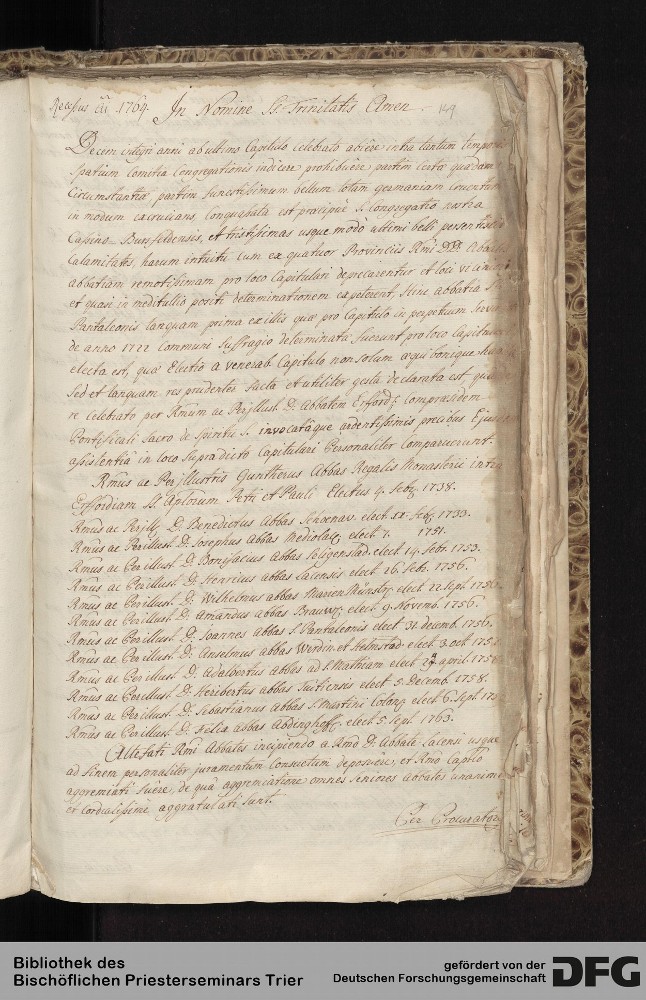 Recessus 1764. In Nomine SS. Trinitatis Amen. 149
Decem integri anni ab ultimo Capitulo celebrato abiere intra tantum temporis
spatium Comitia Congregationis indicere prohibuere partim certæ quædam
Circumstantiæ partim funestissimum bellum totam germaniam cruentum
in modum excrucians, conquassata est præcipuè S. Congregatio nostra
Cassino-Bursfeldensis, et tristissimas usque modò ultimi belli persentiscit
Calamitates, harum intuitu cum ex quatuor Provinciis Rmi DD. Abbates
abbatiam remotissimam pro loco Capitulari deprecarentur et loci
et quasi in meditullio positi determinationem expeterent, hinc abbatia S.
Pantaleonis tanquam prima ex illis quæ pro Capitulo in perpetuum
de anno 1722 communi suffragio determinatæ fuerunt pro loco Capitulari
electa est, quæ Electio a venerab. Capitulo non solum æqui bonique
sed et tanquam res prudenter facta et utiliter gesta declarata est,
re celebrato per Rmum ac Perillust. D. Abbatem Erfford. compræsidem
Pontificali sacro de Spiritu S. invocatâque ardentissimis precibus Ejus
assistentiâ in loco supradicto Capitulari Personaliter comparuerunt.
Rmus ac Perillustris Guntherus Abbas Regalis Monasterii intra
Erffordiam SS. Aplorum Petri et Pauli Electus 9. 1738.
Rmus ac Perill. D. Benedictus Abbas Schonav. elect 11. 1733.
Rmus ac Perillust. D. Josephus Abbas Mediolac. elect 7. 1751.
Rmus ac Perillust. D. Bonifacius Abbas Seligenstad. elect 14. febr. 1753.
Rmus ac Perillust. D. Henricus abbas Lacensis elect 26. febr. 1756.
Rmus ac Perillust. D. Wilhelmus abbas Marien Münstr. elect 22 Sept.
Rmus ac Perillust. D. Amandus abbas Brauwr. elect 9. Novemb. 1756.
Rmus ac Perillust. D. Joannes abbas S. Pantaleonis elect 31. decemb. 1756.
Rmus ac Perillust. D. Anselmus abbas Werdin. et Helmstad. elect 3. oct.
Rmus ac Perillust. D. Adalbertus abbas ad S. Mathiam elect april
Rmus ac Perillust. D. Heribertus abbas Tuitiensis elect 5. Decemb. 1758.
Rmus ac Perillust. D. Sebastianus abbas S. Martini Colon. elect 6. Sept.
Rmus ac Perillust. D. Felix abbas Abdinghoff. elect 5. Sept. 1763.
Attestati Rmi Abbates incipiendo a Rmo D. Abbate Lacensi usque
ad finem personaliter juramentum consuetum deposuere, et Rmo Caplo
aggremiati fuere, de quâ aggremiatione omnes seniores abbates unanimi
et cordialissime aggratulati sunt.
Per Procuratores
Bibliothek des
Bischöflichen Priesterseminars Trier
gefördert von der
Deutschen Forschungsgemeinschaft
DFG